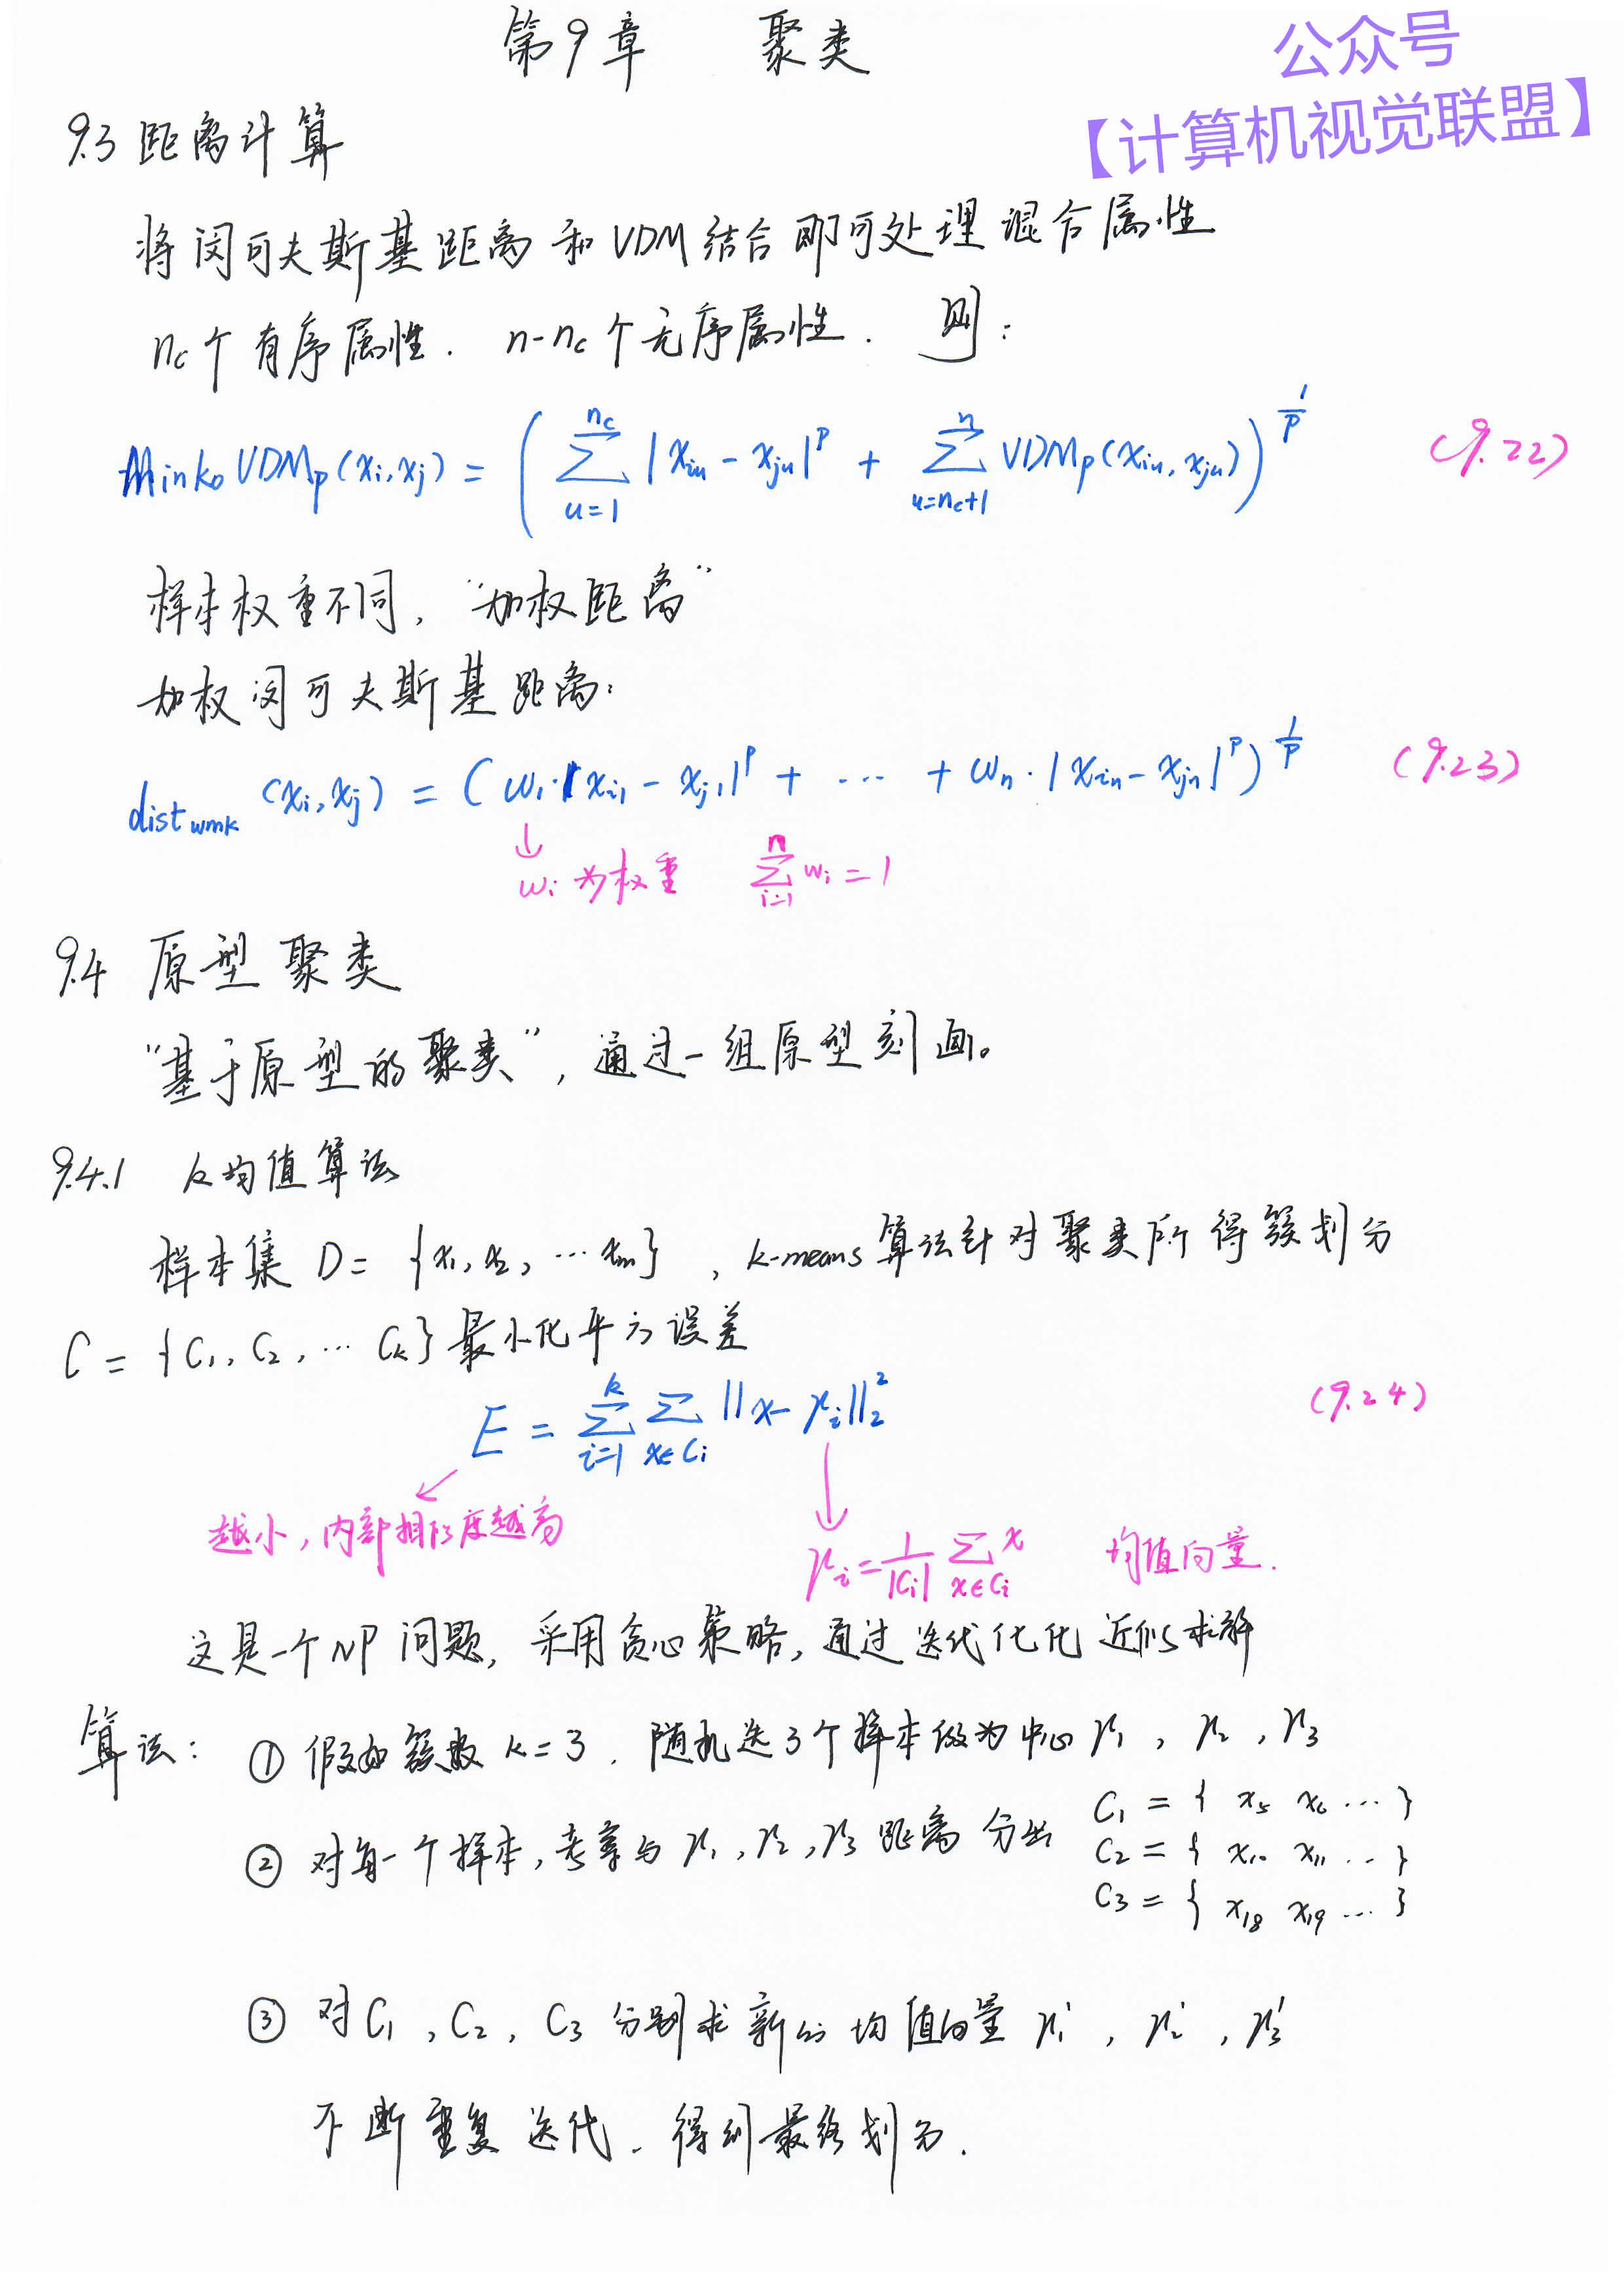 第9章 聚类
公众号
【计算机视觉联盟】
9.3 距离计算
将闵可夫斯基距离和VDM结合即可处理混合属性
n_c个有序属性. n-n_c个无序属性. 则:
MinkoVDM_p(x_i,x_j) = (∑_{u=1}^{n_c} |x_{iu} - x_{ju}|^p + ∑_{u=n_c+1}^{n} VDM_p(x_{iu}, x_{ju}))^{1/p} (9.22)
样本权重不同, “加权距离”
加权闵可夫斯基距离:
dist_{wmk}(x_i,x_j) = (w_1·|x_{i1} - x_{j1}|^p + ··· + w_n·|x_{in} - x_{jn}|^p)^{1/p} (9.23)
↓
w_i为权重 ∑_{i=1}^{n} w_i = 1
9.4 原型聚类
“基于原型的聚类”, 通过一组原型刻画。
9.4.1 k均值算法
样本集 D = {x_1, x_2, ··· x_m}, k-means算法针对聚类所得簇划分
C = {C_1, C_2, ··· C_k} 最小化平方误差
E = ∑_{i=1}^{k} ∑_{x∈C_i} ||x - μ_i||_2^2 (9.24)
越小, 内部相似度越高
μ_i = 1/|C_i| ∑_{x∈C_i} x 均值向量.
这是一个NP问题, 采用贪心策略, 通过迭代化化近似求解
算法: ① 假如簇数 k=3. 随机选3个样本做为中心 μ_1, μ_2, μ_3
② 对每一个样本, 考察与 μ_1, μ_2, μ_3 距离 分出
C_1 = { x_5 x_6 ··· }
C_2 = { x_10 x_11 ··· }
C_3 = { x_18 x_19 ··· }
③ 对C_1, C_2, C_3 分别求新的均值向量 μ_1', μ_2', μ_3'
不断重复迭代. 得到最终划分.